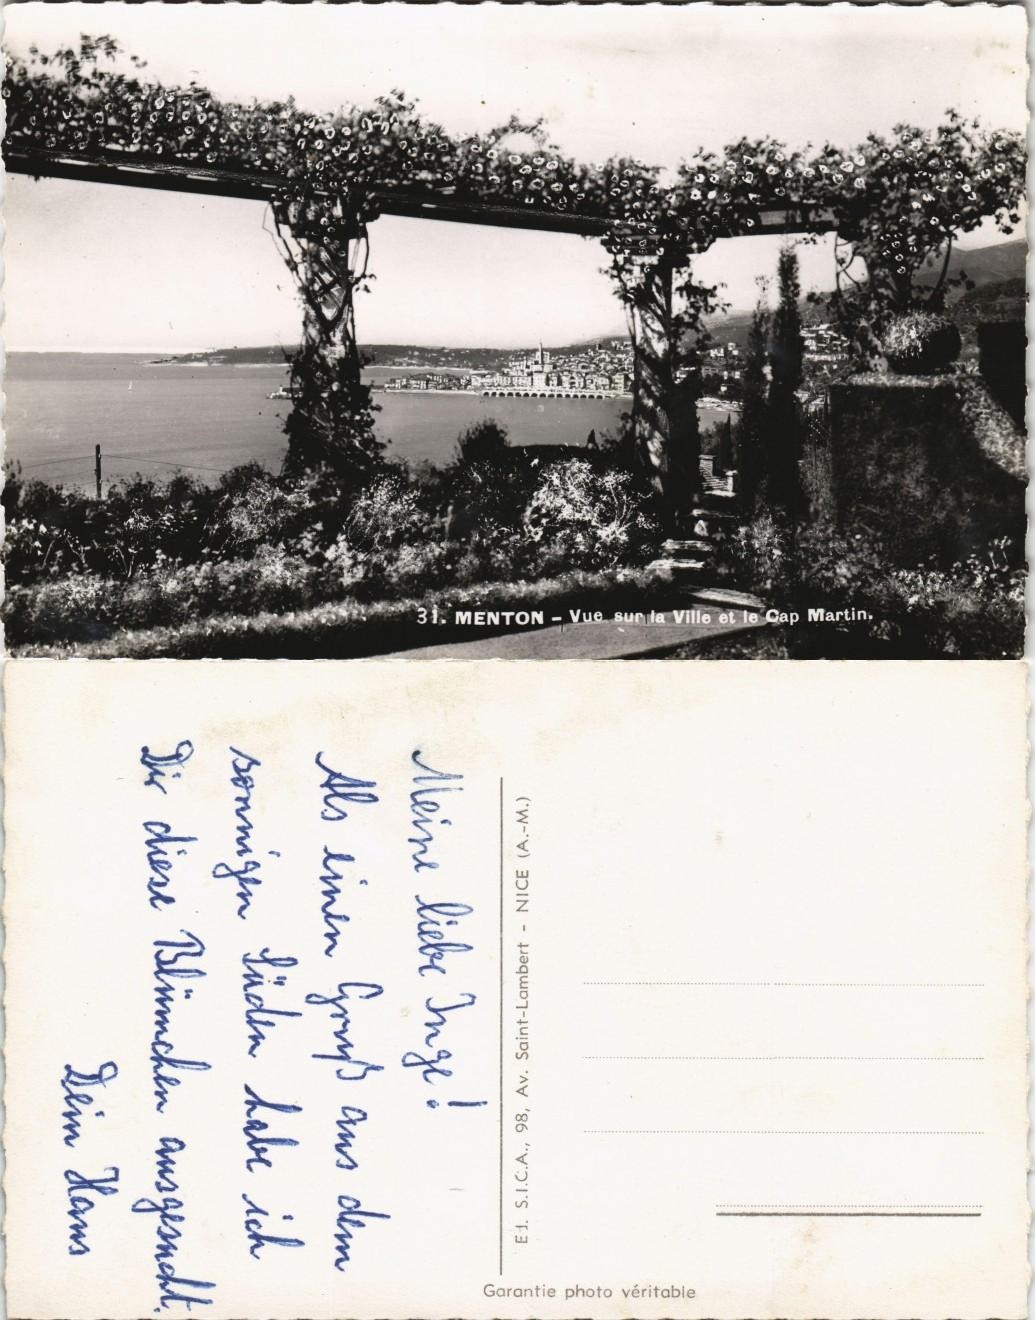 31. MENTON – Vue sur la Ville et le Cap Martin.
Meine liebe Inge!
Als einen Gruß aus dem
sonnigen Süden habe ich
Dir diese Blümchen ausgesucht.
Dein Hans
Et. S.I.C.A., 98, Av. Saint-Lambert - NICE (A.-M.)
Garantie photo véritable